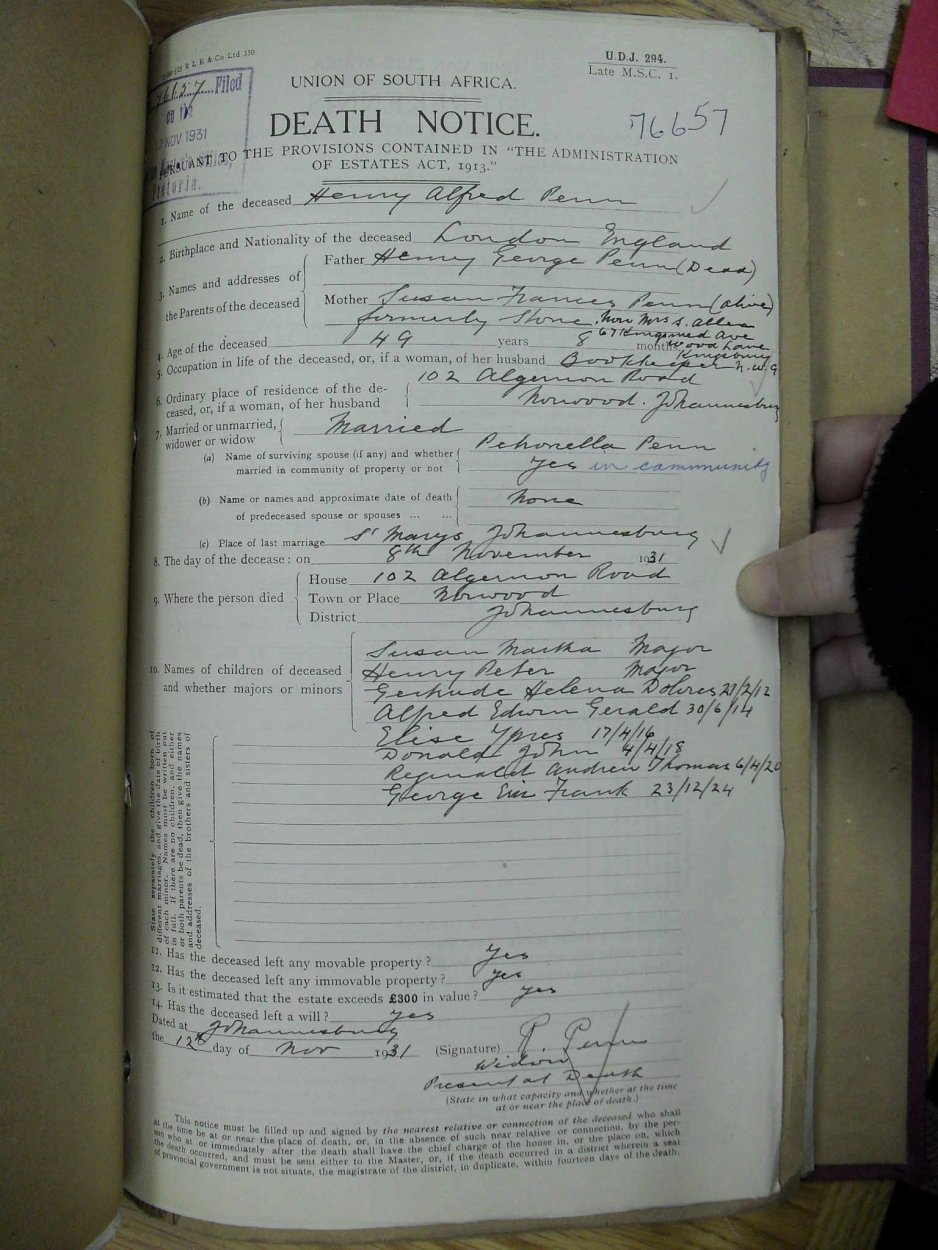 R L E & Co Ltd 330
U.D.J. 294.
Late M.S.C. 1.
Filed
on the
NOV 1931
Pretoria.
UNION OF SOUTH AFRICA.
DEATH NOTICE.
76657
PURSUANT TO THE PROVISIONS CONTAINED IN "THE ADMINISTRATION
OF ESTATES ACT, 1913."
1. Name of the deceased Henry Alfred Penn
2. Birthplace and Nationality of the deceased London England
3. Names and addresses of the Parents of the deceased
Father Henry George Penn (Dead)
Mother Susan Frances Penn (alive)
formerly Stone. Now Mrs S. Allen
67 Ave
Wood Lane
Kingsbury
N.W.9
4. Age of the deceased 49 years 8 months
5. Occupation in life of the deceased, or, if a woman, of her husband Bookkeeper
6. Ordinary place of residence of the deceased, or, if a woman, of her husband
102 Algernon Road
Norwood. Johannesburg
7. Married or unmarried, widower or widow Married
(a) Name of surviving spouse (if any) and whether married in community of property or not
Petronella Penn
Yes in community
(b) Name or names and approximate date of death of predeceased spouse or spouses ... ...
None
(c) Place of last marriage St Marys Johannesburg
8. The day of the decease : on 8th November 1931
9. Where the person died
House 102 Algernon Road
Town or Place Norwood
District Johannesburg
10. Names of children of deceased and whether majors or minors
Susan Martha Major
Henry Peter Major
Gertrude Helena Dolores 21/2/12
Alfred Edwin Gerald 30/6/14
Elise Ypres 17/4/16
Donald John 4/4/18
Reginald Andrew Thomas 6/4/20
George Frank 23/12/24
State separately the children born of
different marriages, and give the date of birth
of each minor. Names must be written out
in full. If there are no children, and either
or both parents be dead, then give the names
and addresses of the brothers and sisters of
deceased.
11. Has the deceased left any movable property ? Yes
12. Has the deceased left any immovable property ? Yes
13. Is it estimated that the estate exceeds £300 in value ? Yes
14. Has the deceased left a will ? Yes
Dated at Johannesburg
the 12th day of Nov 1931
(Signature) P. Penn
Widow
Present at Death
(State in what capacity and whether at the time
at or near the place of death.)
This notice must be filled up and signed by the nearest relative or connection of the deceased who shall
at the time be at or near the place of death, or, in the absence of such near relative or connection, by the per-
son who at or immediately after the death shall have the chief charge of the house in, or the place on, which
the death occurred, and must be sent either to the Master, or, if the death occurred in a district wherein a seat
of provincial government is not situate, the magistrate of the district, in duplicate, within fourteen days of the death.